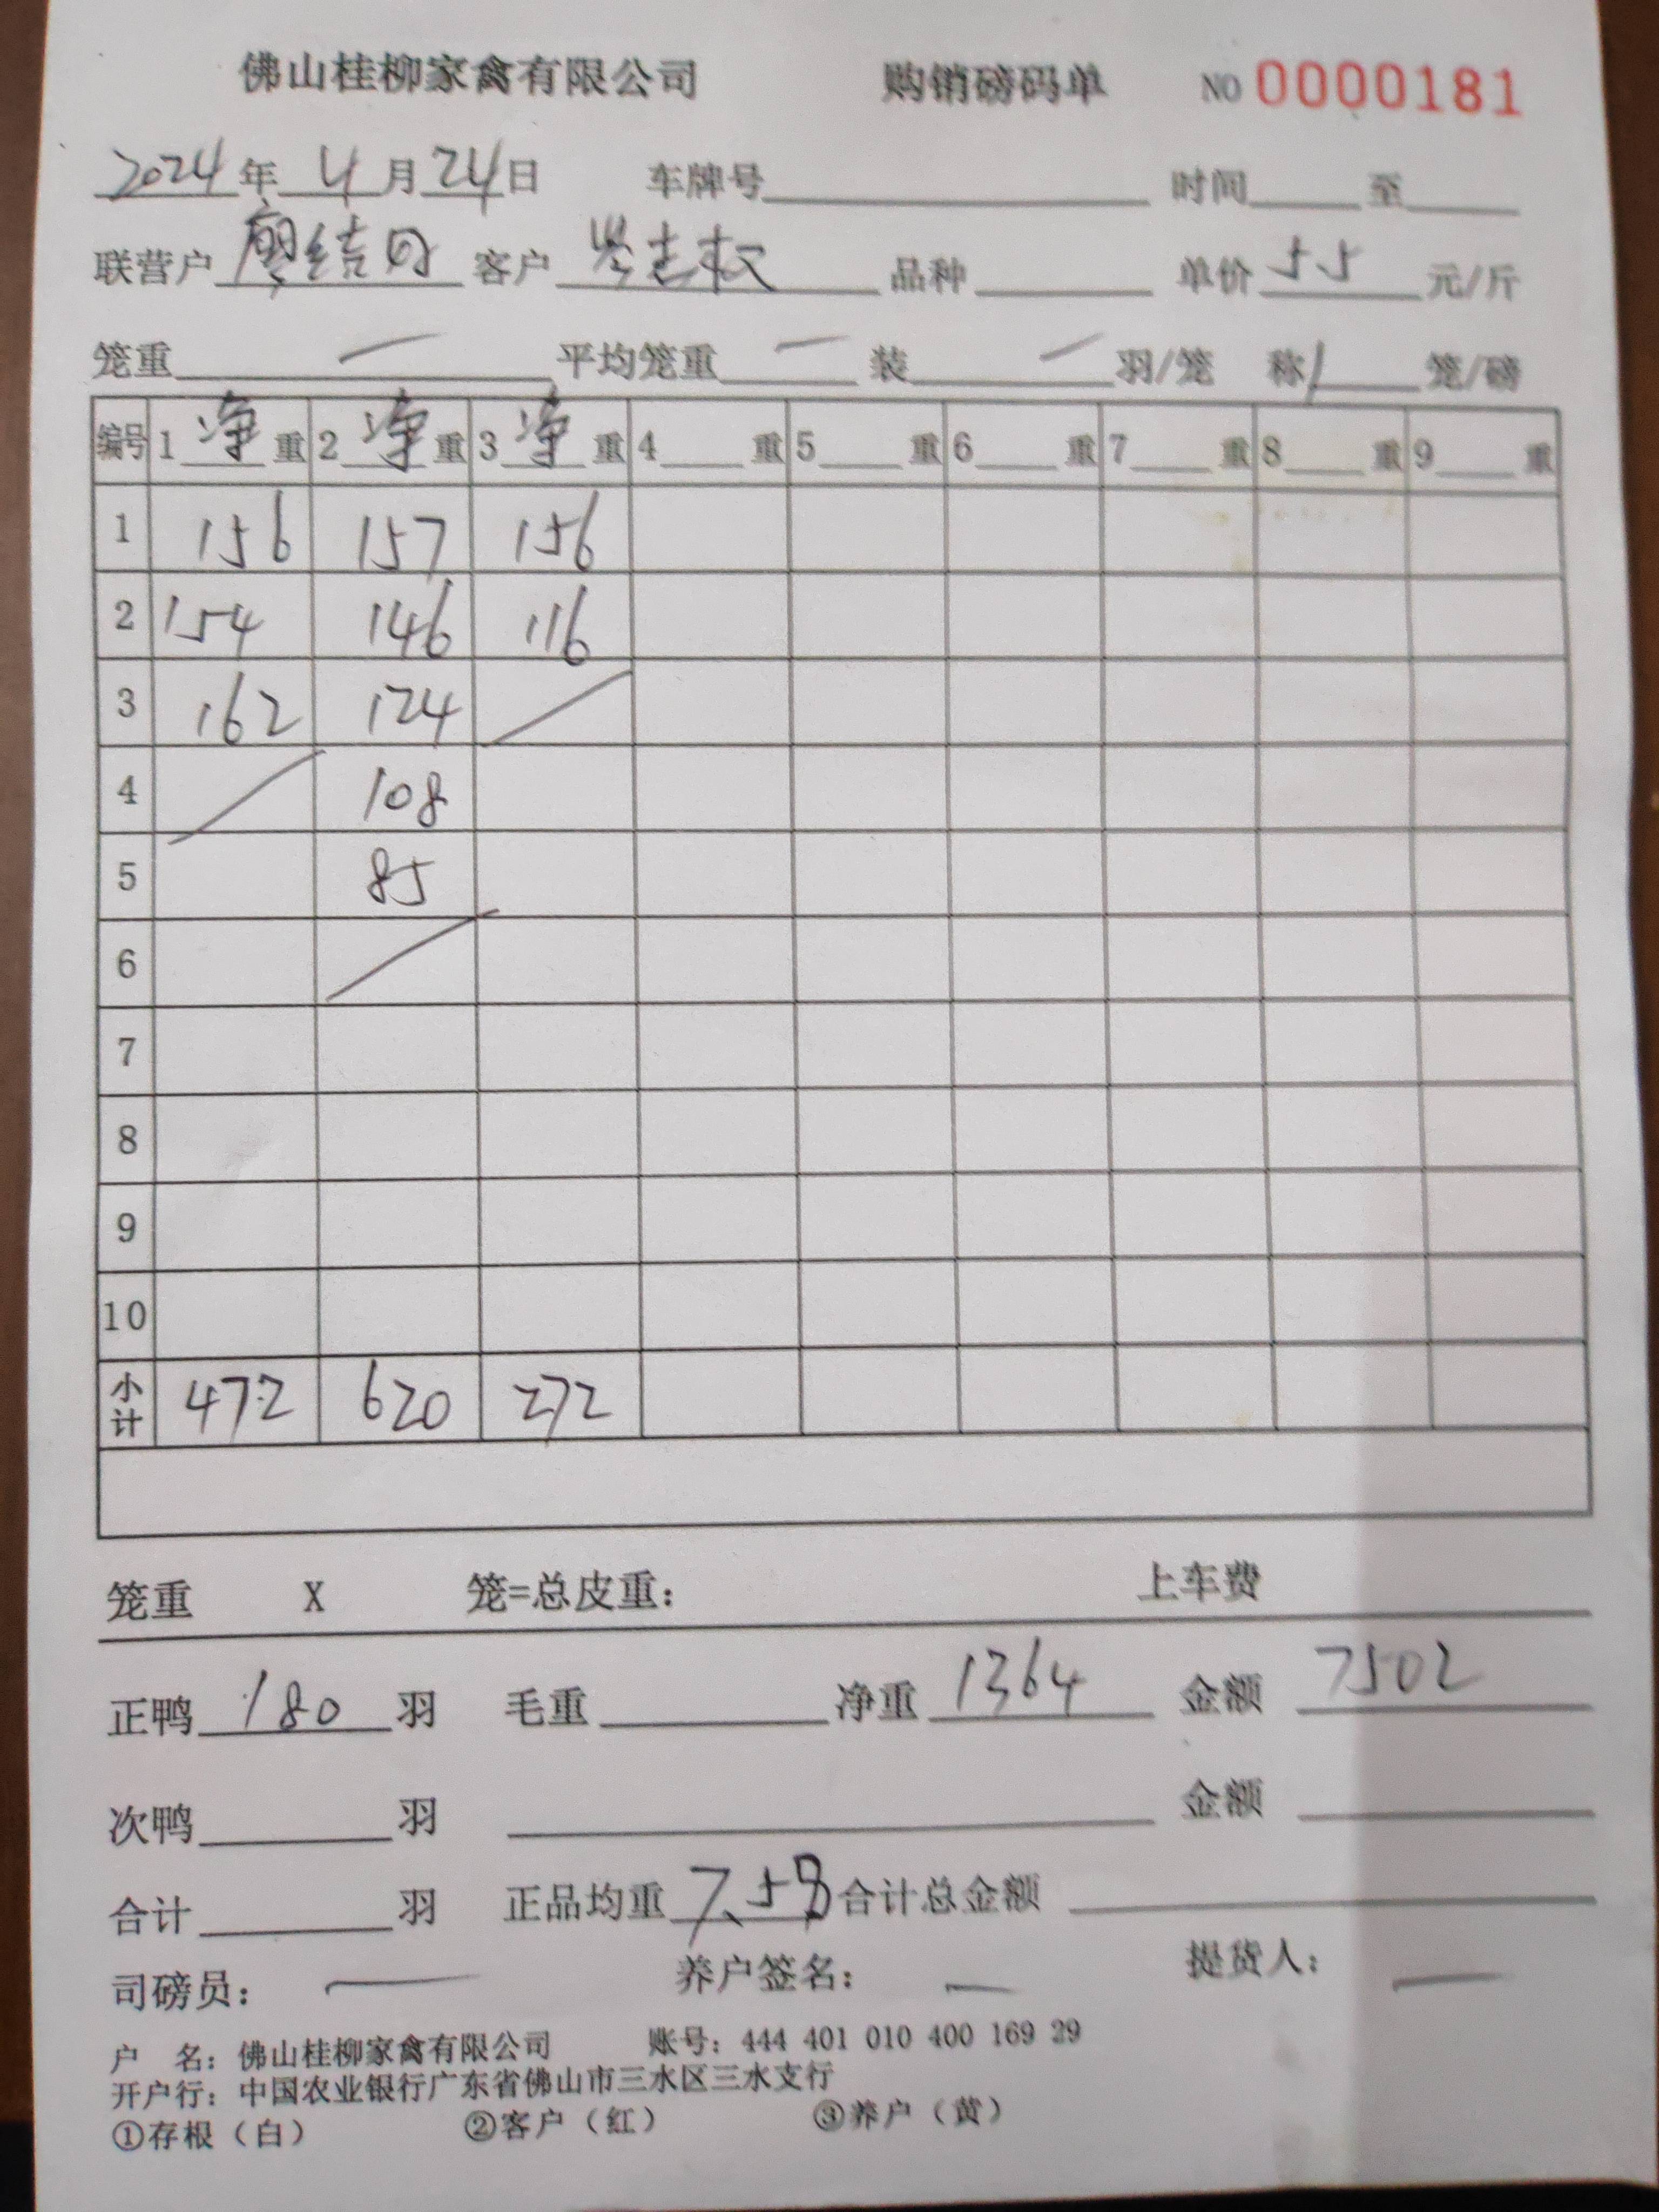 佛山桂柳家禽有限公司 购销磅码单 NO 0000181
2024年 4月24日 车牌号 时间 至
联营户 廖结 客户 权 品种 单价 5.5 元/斤
笼重 一 平均笼重 一 装 一 羽/笼 称 笼/磅
编号 1 净 重 2 净 重 3 净 重 4 重 5 重 6 重 7 重 8 重 9 重
1 156 157 156
2 154 146 116
3 162 124
4 108
5 85
6
7
8
9
10
小计 472 620 272
笼重 X 笼=总皮重: 上车费
正鸭 180 羽 毛重 净重 1364 金额 7502
次鸭 羽 金额
合计 羽 正品均重 7.58 合计总金额
司磅员: 一 养户签名: 一 提货人: 一
户 名: 佛山桂柳家禽有限公司 账号: 444 401 010 400 169 29
开户行: 中国农业银行广东省佛山市三水区三水支行
①存根(白) ②客户(红) ③养户(黄)